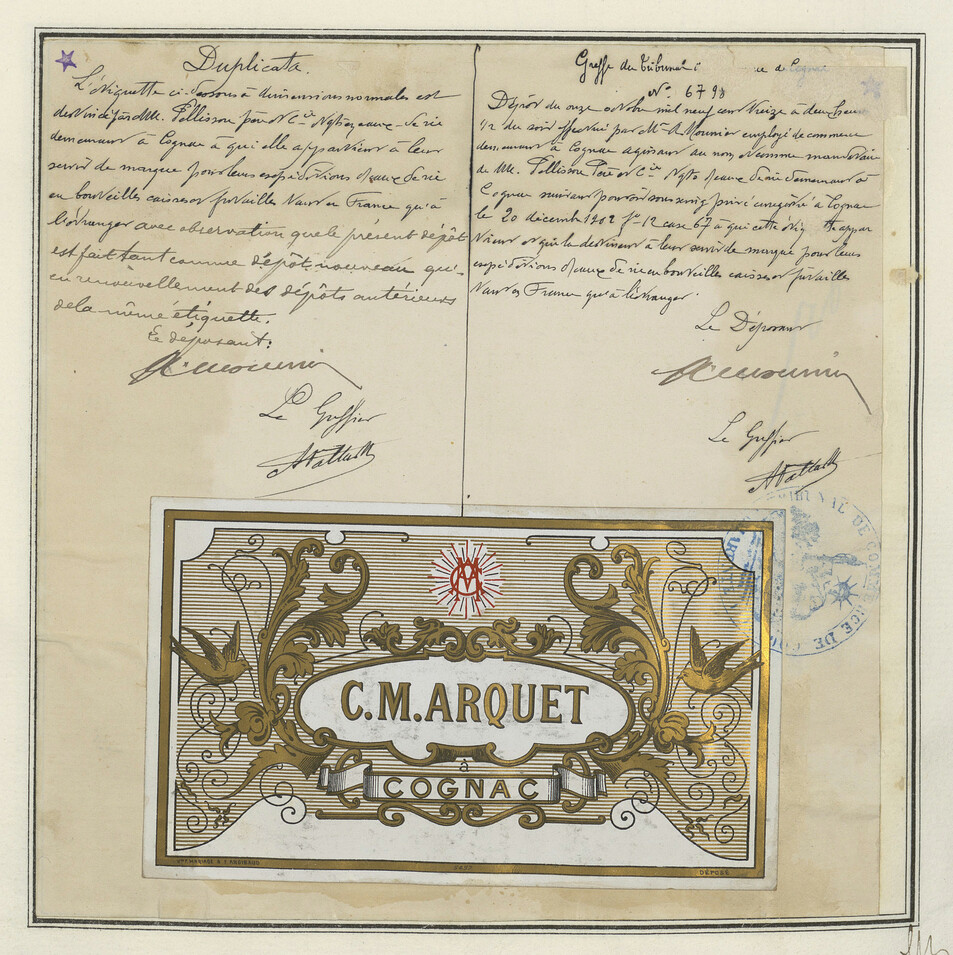 Duplicata.
L'étiquette ci-dessous à dimensions normales est
destinée par MM. Pellisson père & Cie Ngts eaux-de-vie
demeurant à Cognac à qui elle appartient à leur
servir de marque pour leurs expéditions d'eaux de vie
en bouteilles caisses et futailles tant en France qu'à
l'étranger avec observation que le présent dépôt
est fait tant comme dépôt nouveau qu'
en renouvellement des dépôts antérieurs
de la même étiquette.
Le déposant:
Le Greffier
Greffe du Tribunal
No. 6798
Dépôt du onze octobre mil neuf cent treize à deux heures
1/2 du soir effectué par Mr R. Mounier employé de commerce
demeurant à Cognac agissant au nom et comme mandataire
de MM. Pellisson Père & Cie Ngts d'eaux de vie demeurant à
Cognac suivant pouvoir sous seing privé enregistré à Cognac
le 20 décembre 1902 fo 12 case 67 à qui cette étiq appar
tient et qui la destinent à leur servir de marque pour leurs
expéditions d'eaux de vie en bouteilles caisses et futailles
tant en France qu'à l'étranger.
Le Déposant
Le Greffier
TRIBUNAL DE COMMERCE DE
C.M. ARQUET
à
COGNAC
DÉPOSÉ